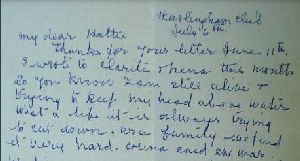 Hurlingham Club
July 6th.
My dear Hattie
Thanks for your letter June 11th
I wrote to this month
So you know I am still alive &
trying to keep my head above water
What a life it is always trying
to cut down, as a family we find
it very hard. said she was